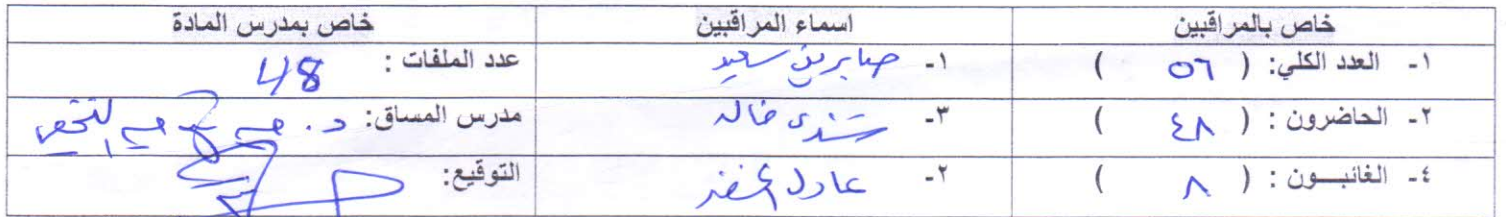 خاص بالمراقبين اسماء المراقبين خاص بمدرس المادة
١- العدد الكلي: ( ٥٦ ) ١- صابرين سعيد عدد الملفات : 48
٢- الحاضرون : ( ٤٨ ) ٣- خالد مدرس المساق: د.
٤- الغائبـــون : ( ٨ ) ٢- عادل التوقيع: